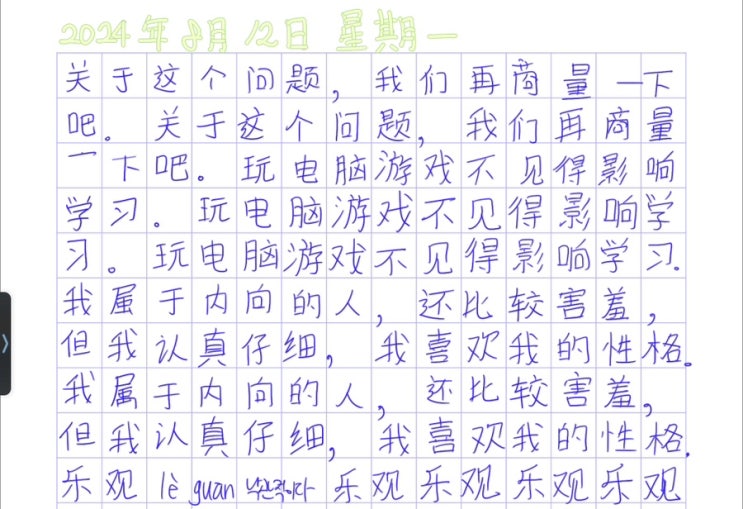 2024年8月12日 星期一
关于这个问题，我们再商量一下
吧．关于这个问题，我们再商量
一下吧。玩电脑游戏不见得影响
学习。玩电脑游戏不见得影响学
习。玩电脑游戏不见得影响学习.
我属于内向的人，还比较害羞，
但我认真仔细，我喜欢我的性格.
我属于内向的人，还比较害羞，
但我认真仔细，我喜欢我的性格.
乐观 lè guan 낙관적이다 乐观乐观乐观乐观